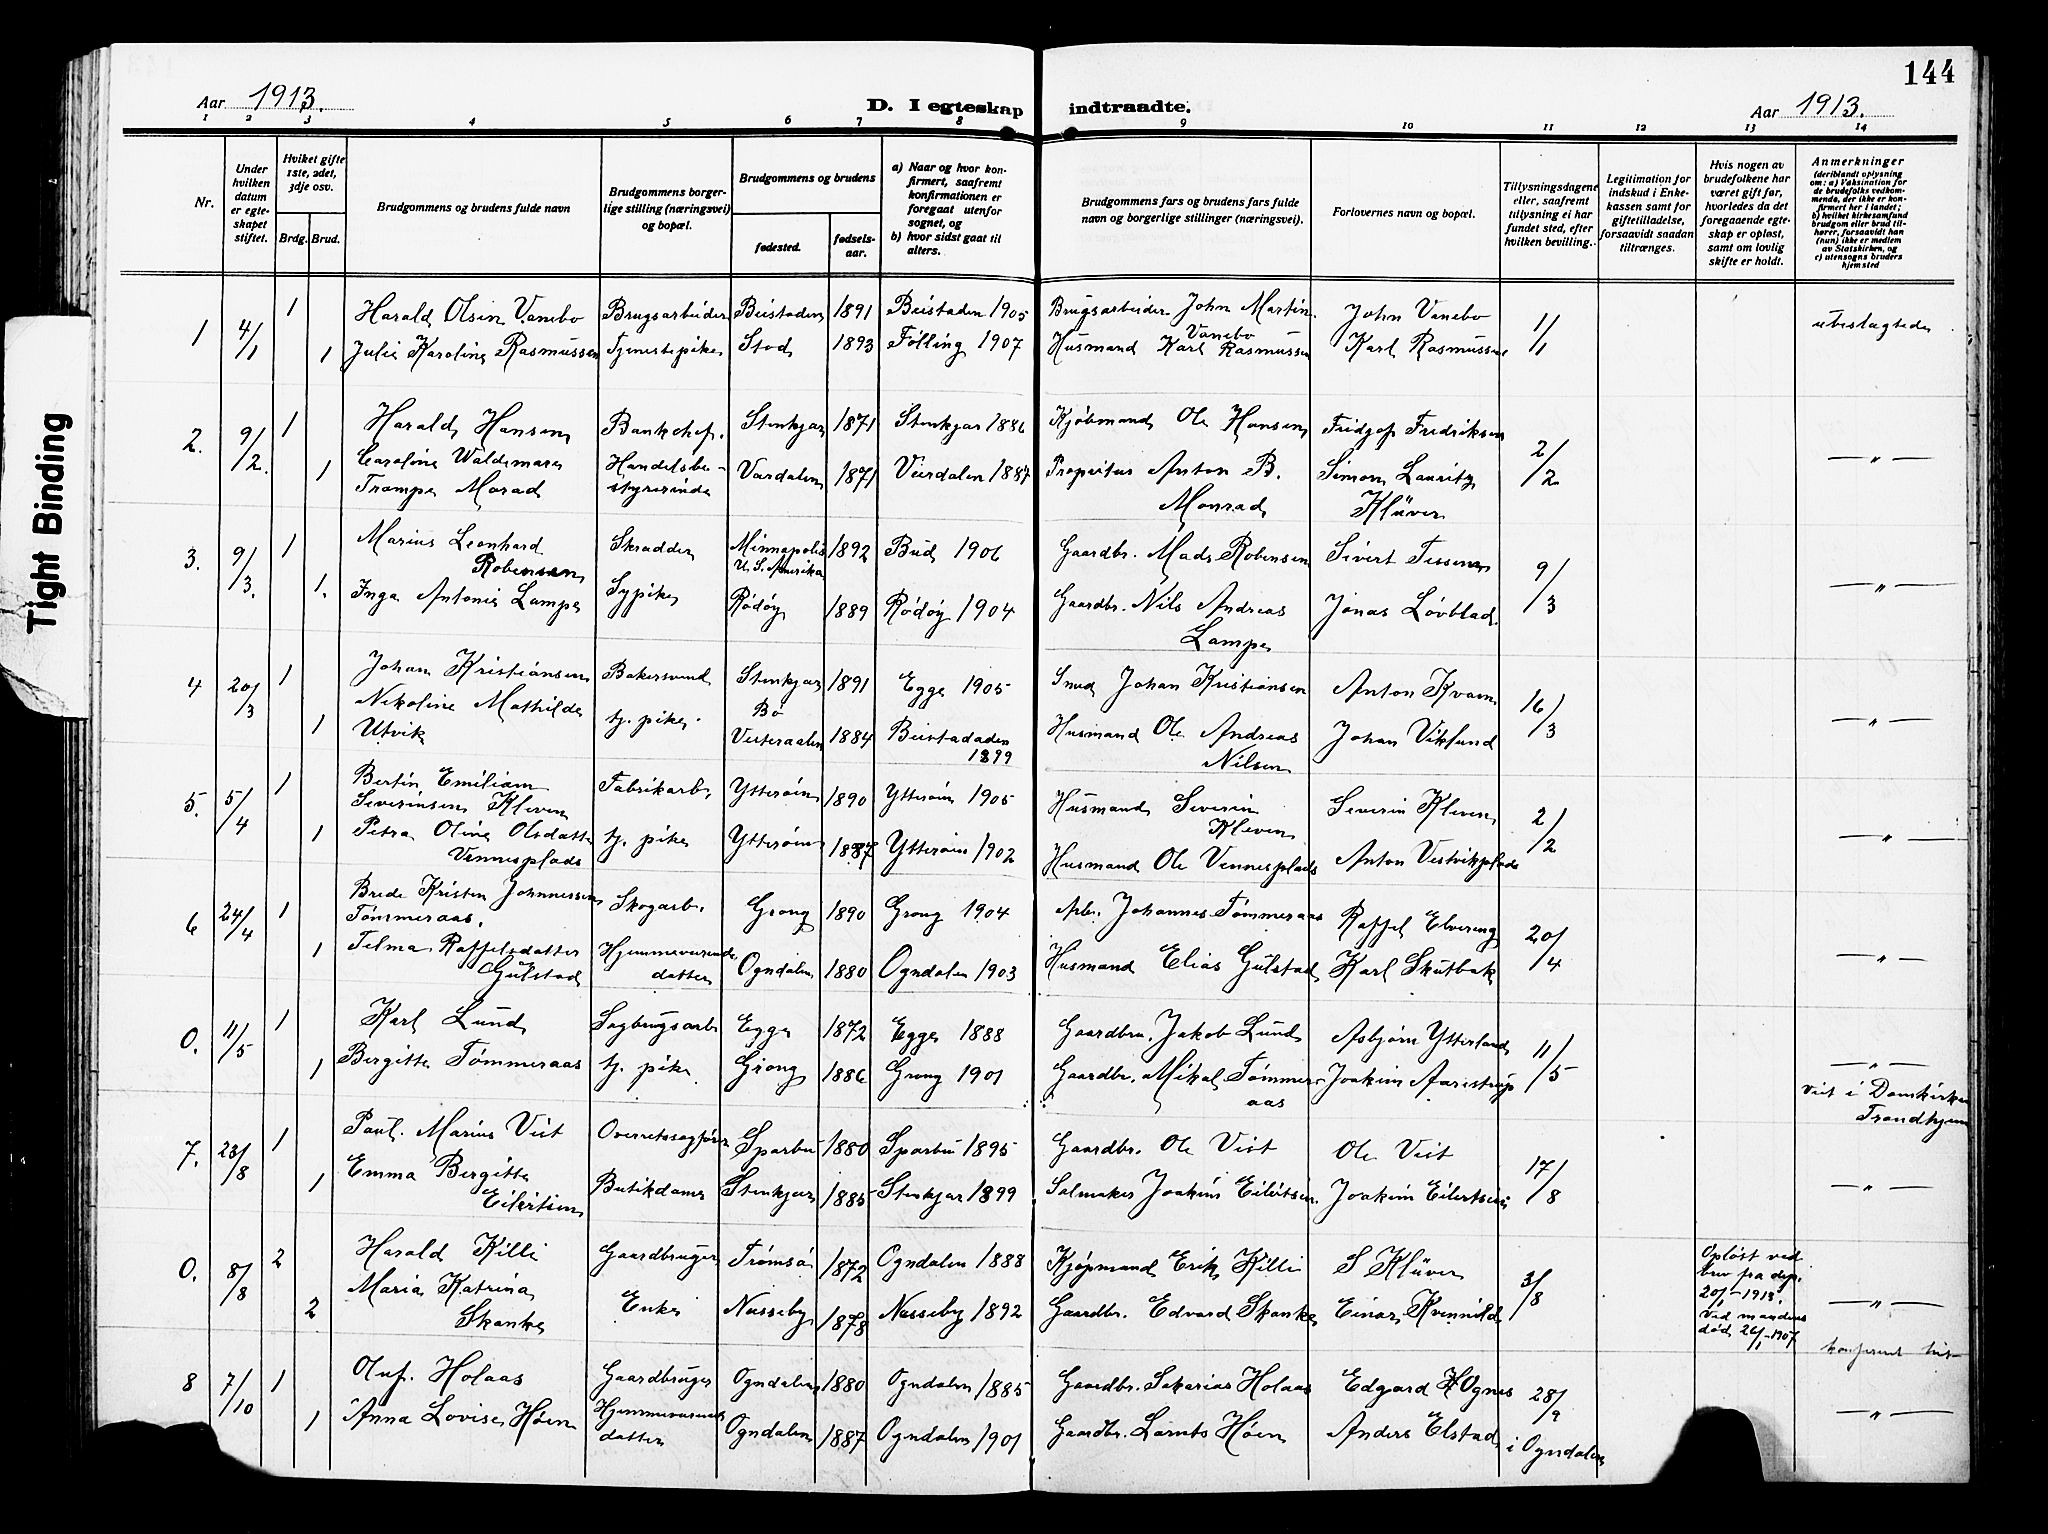 144
Aar 1913. D. I egteskap indtraadte. Aar 1913.
1 2 3 4 5 6 7 8 9 10 11 12 13 14
Nr.
Under hvilken datum er egteskapet stiftet.
Hvilket gifte 1ste, 2det, 3dje osv.
Brdg. Brud.
Brudgommens og brudens fulde navn
Brudgommens borgerlige stilling (næringsvei) og bopæl.
Brudgommens og brudens
fødested. fødselsaar.
a) Naar og hvor konfirmert, saafremt konfirmationen er foregaat utenfor sognet, og
b) hvor sidst gaat til alters.
Brudgommens fars og brudens fars fulde navn og borgerlige stillinger (næringsvei).
Forlovernes navn og bopæl.
Tillysningsdagene eller, saafremt tillysning ei har fundet sted, efter hvilken bevilling.
Legitimation for indskud i Enkekassen samt for giftetilladelse, forsaavidt saadan tiltrænges.
Hvis nogen av brudefolkene har været gift før, hvorledes da det foregaaende egteskap er opløst, samt om lovlig skifte er holdt.
Anmerkninger (deriblandt oplysning om: a) Vaksination for de brudefolks vedkommende, der ikke er konfirmert her i landet; b) hvilket kirkesamfund brudgom eller brud tilhører, forsaavidt han (hun) ikke er medlem av Statskirken, og c) utensogns bruders hjemsted
1 4/1 1 Harald Olsen Vanebo Brugsarbeider Beistaden 1891 Beistaden 1905 Brugsarbeider John Martin Vanebo John Vanebo 1/1 ubeslægtede
1 Julie Karoline Rasmussen Tjenestepike Stod 1893 Følling 1907 Husmand Karl Rasmussen Karl Rasmussen
2. 9/2. 1 Harald Hansen Bankchef. Stenkjær 1871 Stenkjær 1886 Kjøbmand Ole Hansen Fridgof Fredriksen 2/2 — " —
1 Caroline Waldemara Trampe Morad Handelsbestyrerinde Værdalen 1871 Verdalen 1887 Proprietær Anton B. Monrad Simon Lauritz Klüver
3. 9/3. 1 Marius Leonhard Robensen Skrædder Minnapolis U. S. Amerika 1892 Bud 1906 Gaardbr. Mads Robensen Sivert Tessem 9/3 — " —
1. Inga Antonie Lampe Sypike Rödöy 1889 Rödöy 1904 Gaardbr. Nils Andreas Lampe Jonas Løvblad.
4 20/3 1 Johan Kristiansen Bakersvend Stenkjær 1891 Egge 1905 Smed Johan Kristiansen Anton Kvam 16/3 — " —
1 Nikoline Mathilde Utvik tj. pike. Bö Vesteraalen 1884 Beistadaden 1899 Husmand Ole Andreas Nilsen Johan Viklund
5. 5/4 1 Bertin Emiliam Severinsen Kleven Fabrikarb. Ytterøen 1890 Ytterøen 1905 Husmand Severin Kleven Severin Kleven 2/2 — " —
1 Petra Oline Olsdatter Vennesplads tj. pike Ytterøen 1887 Ytterøen 1902 Husmand Ole Vennesplads Anton Vestvikplads
6 24/4 1 Brede Kristen Johannessen Tømmeraas. Skogarb. Grong 1890 Grong 1904 Arb. Johannes Tømmeraas Raffel Elvereng 20/4 — " —
1 Telma Raffelsdatter Gulstad Hjemmeværende datter Ogndalen 1880 Ogndalen 1903 Husmand Elias Gulstad Karl Skutbak
0. 11/5 1 Karl Lund Sagbrugsarb Egge 1872 Egge 1888 Gaardbr. Jakob Lund Asbjørn Ytterland 11/5 — " —
1 Bergitte Tømmeraas tj. pike Grong 1886 Grong 1901 Gaardbr. Mikal Tømmeraas Joakim Aaristrup
Viet i Domkirken Trondhjem
7. 23/8 1 Paul Marius Vist Overretssagfører Sparbu 1880 Sparbu 1895 Gaardbr. Ole Vist Ole Vist 17/8 — " —
1 Emma Bergitte Eilertsen Butikdame Stenkjær 1885 Stenkjær 1899 Salmaker Joakim Eilertsen. Joakim Eilertsen
0. 8/8 2 Harald Killi Gaardbruger Tromsø 1872 Ogndalen 1888 Kjøpmand Erik Killi S Klüver 3/8 Opløst ved brev fra dep. 20/1-1913. — " —
2 Maria Katrina Skanke Enke Nesseby 1878 Nesseby 1892 Gaardbr. Edvard Skanke Einar Kvernild Ved mandens død 26/1-1907.
8 7/10 1 Oluf. Holaas Gaardbruger Ogndalen 1880 Ogndalen 1885 Gaardbr. Sakarias Holaas Edgard H Ognes 28/9 i Ogndalen — " —
1 Anna Lovise Høen Hjemmeværende datter Ogndalen 1887 Ogndalen 1901 Gaardbr. Lornts Høen Anders Elstad
Tight Binding